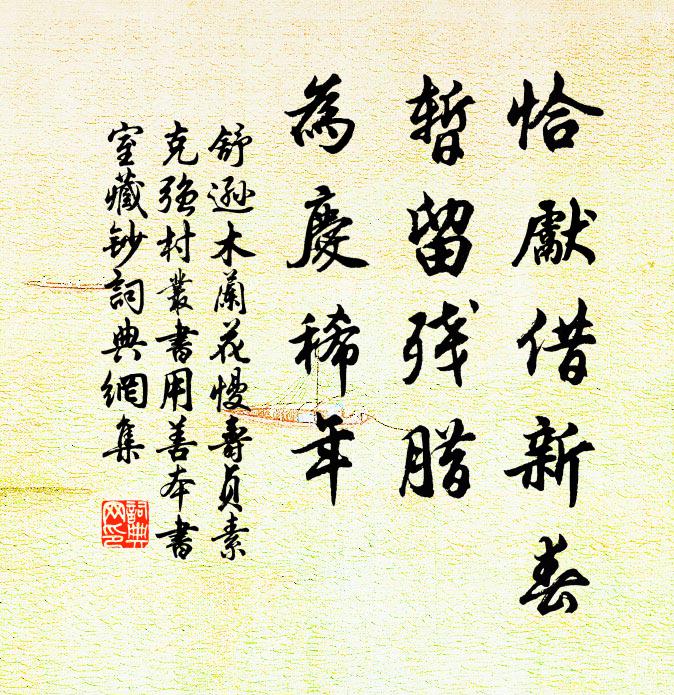 恰獻借新春
暫留残腊
為慶稀年
舒遜木蘭花慢壽貞素
克強村叢書用善本書
室藏鈔詞典網集
詞典网印